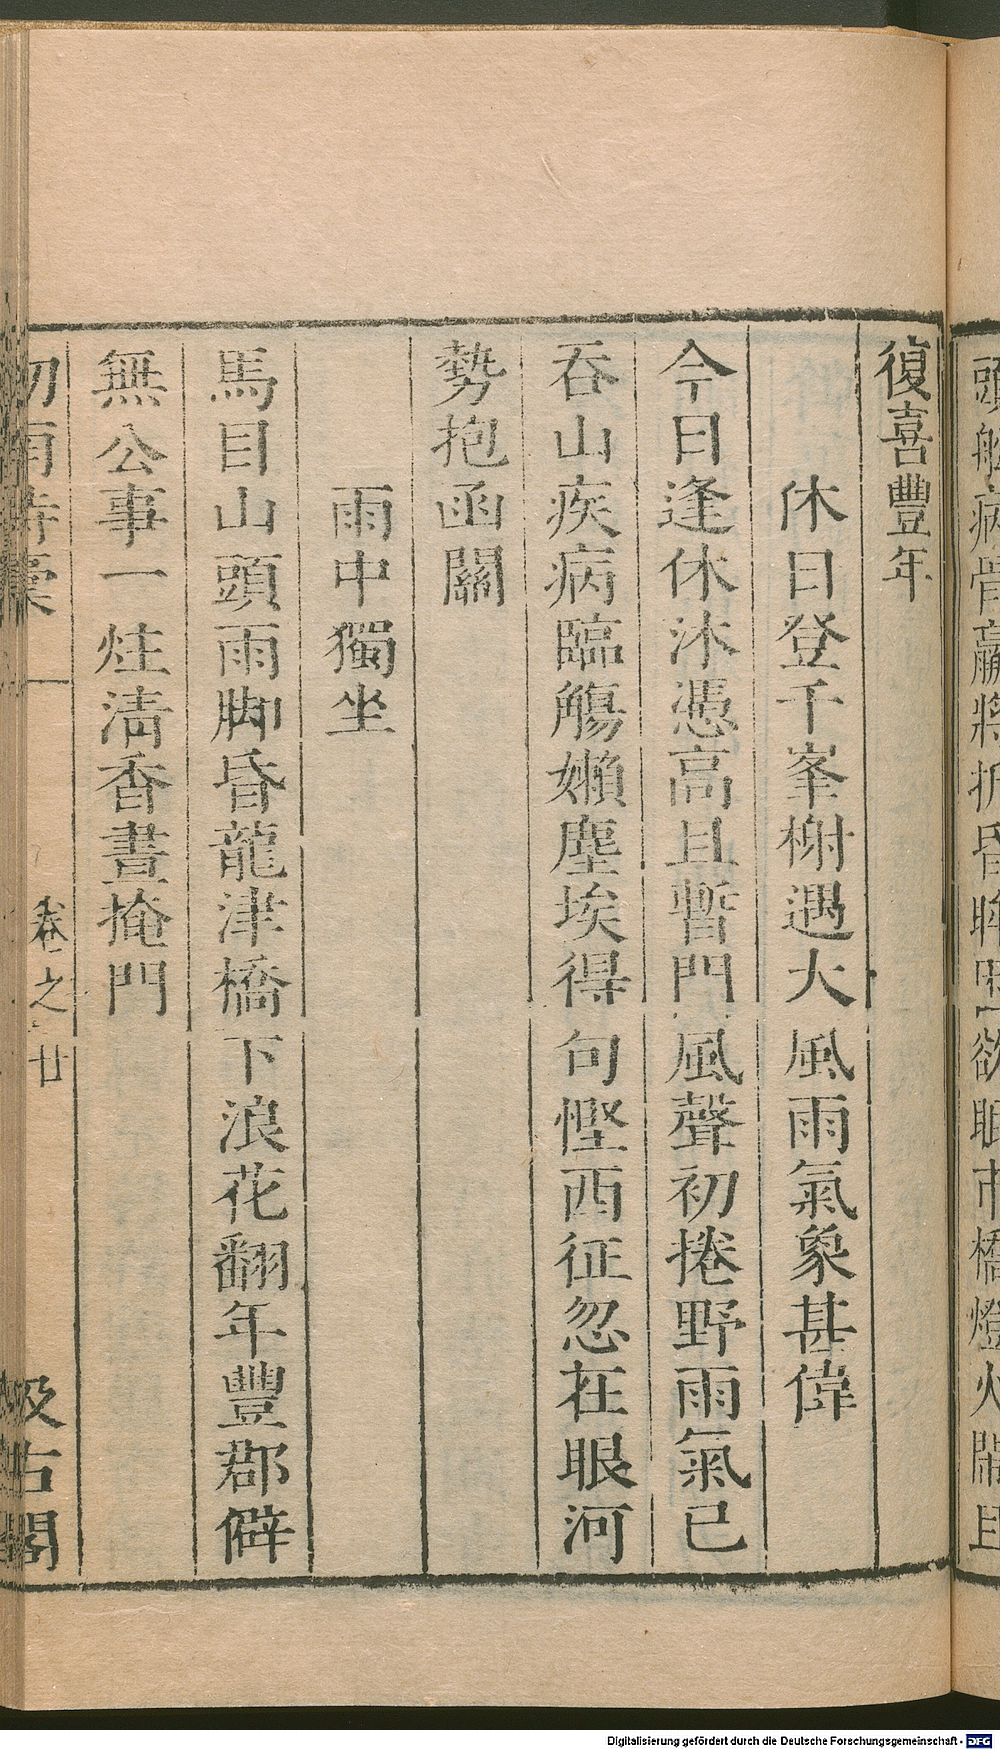 頭
病骨羸將折昏眸思欲眠市橋燈火鬧且
復喜豐年
休日登千峯榭遇大風雨氣象甚偉
今日逢休沐憑高且暫門風聲初捲野雨氣已
吞山疾病臨觴嬾塵埃得句慳西征忽在眼河
勢抱函關
雨中獨坐
馬目山頭雨脚昏龍津橋下浪花翻年豐郡僻
無公事一炷清香晝掩門
卷之廿
汲古閣
Digitalisierung gefördert durch die Deutsche Forschungsgemeinschaft - DFG